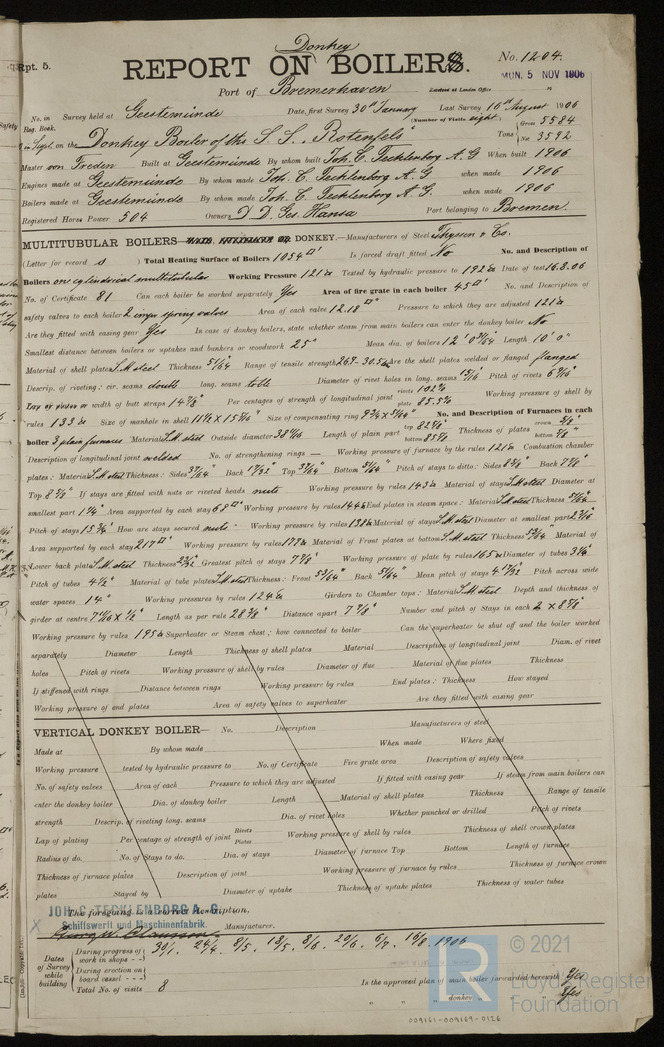 Rpt. 5.
Donkey
REPORT ON BOILERS.
No. 1204.
Port of Bremerhaven
Received at London Office
MON. 5 NOV 1906
No. in Survey held at Geestemünde Date, first Survey 30th January Last Survey 16th August 1906
Reg. Book.
(Number of Visits eight)
on the Donkey Boiler of the S.S. "Rotenfels"
Tons { Gross 5584
Net 3592
Master von Freden Built at Geestemünde By whom built Joh. C. Tecklenborg A.G When built 1906
Engines made at Geestemünde By whom made Joh. C. Tecklenborg A.G. when made 1906
Boilers made at Geestemünde By whom made Joh. C. Tecklenborg A.G. when made 1906
Registered Horse Power 504 Owners D. D. Ges. Hansa Port belonging to Bremen.
MULTITUBULAR BOILERS MAIN, AUXILIARY OR DONKEY.—Manufacturers of Steel Thyssen & Co.
(Letter for record S) Total Heating Surface of Boilers 1054 □' Is forced draft fitted No No. and Description of
Boilers one cylindrical multitubular Working Pressure 121 lb Tested by hydraulic pressure to 192 lb Date of test 16.8.06
No. of Certificate 81 Can each boiler be worked separately Yes Area of fire grate in each boiler 45 □' No. and Description of
safety valves to each boiler 2 spring valves Area of each valve 12.18 □" Pressure to which they are adjusted 121 lb
Are they fitted with easing gear Yes In case of donkey boilers, state whether steam from main boilers can enter the donkey boiler No
Smallest distance between boilers or uptakes and bunkers or woodwork 25" Mean dia. of boilers 12' 0 3/64" Length 10' 0"
Material of shell plates S.M. steel Thickness 51/64" Range of tensile strength 26.9-30.5 Are the shell plates welded or flanged flanged
Descrip. of riveting: cir. seams double long. seams Diameter of rivet holes in long. seams 15/16" Pitch of rivets
Lap of plates or width of butt straps 14 7/8" Per centages of strength of longitudinal joint rivets 102% plate 85.5% Working pressure of shell by
rules 133 lb Size of manhole in shell Size of compensating ring No. and Description of Furnaces in each
boiler 3 plain furnaces Material S.M. steel Outside diameter 38 Length of plain part top 82 7/8" bottom Thickness of plates crown bottom
Description of longitudinal joint welded No. of strengthening rings — Working pressure of furnace by the rules 121 lb Combustion chamber
plates: Material S.M. steel Thickness: Sides 37/64" Back 17/32" Top 37/64" Bottom Pitch of stays to ditto: Sides 8 7/8" Back 7 7/8"
Top 8 7/8" If stays are fitted with nuts or riveted heads nuts Working pressure by rules 143 lb Material of stays S.M. steel Diameter at
smallest part 1 1/4" Area supported by each stay Working pressure by rules 144 lb End plates in steam space: Material S.M. steel Thickness
Pitch of stays 15 3/4" How are stays secured nuts Working pressure by rules 138 lb Material of stays S.M. steel Diameter at smallest part
Area supported by each stay 217 □" Working pressure by rules 177 lb Material of Front plates at bottom S.M. steel Thickness Material of
Lower back plate S.M. steel Thickness Greatest pitch of stays 7 7/8" Working pressure of plate by rules 165 lb Diameter of tubes
Pitch of tubes 4 1/2" Material of tube plates S.M. steel Thickness: Front 53/64" Back Mean pitch of stays Pitch across wide
water spaces 14" Working pressures by rules 124 lb Girders to Chamber tops: Material S.M. steel Depth and thickness of
girder at centre Length as per rule 28 Distance apart 7 7/8" Number and pitch of Stays in each 2 x 8 7/8"
Working pressure by rules 195 lb Superheater or Steam chest; how connected to boiler Can the superheater be shut off and the boiler worked
separately Diameter Length Thickness of shell plates Material Description of longitudinal joint Diam. of rivet
holes Pitch of rivets Working pressure of shell by rules Diameter of flue Material of flue plates Thickness
If stiffened with rings Distance between rings Working pressure by rules End plates: Thickness How stayed
Working pressure of end plates Area of safety valves to superheater Are they fitted with easing gear
VERTICAL DONKEY BOILER— No. Description Manufacturers of steel
Made at By whom made When made Where fixed
Working pressure tested by hydraulic pressure to No. of Certificate Fire grate area Description of safety valves
No. of safety valves Area of each Pressure to which they are adjusted If fitted with easing gear If steam from main boilers can
enter the donkey boiler Dia. of donkey boiler Length Material of shell plates Thickness Range of tensile
strength Descrip. of riveting long. seams Dia. of rivet holes Whether punched or drilled Pitch of rivets
Lap of plating Per centage of strength of joint Rivets Plates Working pressure of shell by rules Thickness of shell crown plates
Radius of do. No. of Stays to do. Dia. of stays Diameter of furnace Top Bottom Length of furnace
Thickness of furnace plates Description of joint Working pressure of furnace by rules Thickness of furnace crown
plates Stayed by Diameter of uptake Thickness of uptake plates Thickness of water tubes
JOH. C. TECKLENBORG A. G.
The foregoing is a correct description,
Schiffswerft und Maschinenfabrik. Manufacturer.
Dates of Survey while building
During progress of work in shops - - 30/1. 24/4. 8/5. 18/5. 8/6. 20/6. 6/7. 16/8. 1906
During erection on board vessel - - -
Total No. of visits 8
Is the approved plan of main boiler forwarded herewith Yes
" " " donkey " " " Yes
© 2021
Lloyd's Register
Foundation
009161-009169-0126